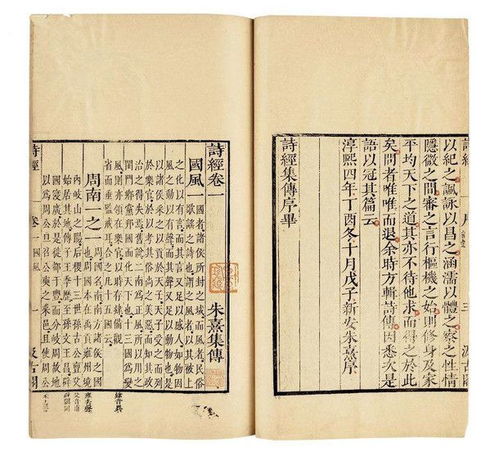 以紀之諷詠以昌之涵濡以體之察之性情
隱微之間審之言行樞機之始則修身及家
平均天下之道其亦不待他求而得之於此
矣問者唯唯而退余時方輯詩傳因悉次是
語以冠其篇云
淳熙四年丁酉冬十月戊子新安朱熹序
詩經集傳序畢
詩經卷一 朱熹集傳
國風一 國者諸侯所封之域而風者民俗
歌謠之詩也謂之風者以其被上
之化以有言而其言又足以感人如物因
風之動以有聲而其聲又足以動物也是
以諸侯采之以貢於天子天子受之而列
於樂官於以考其俗尚之美惡而知其政
治之得失焉舊說二南為正風所以用之
閨門鄉黨邦國而化天下也十三國為變
風則亦領在樂官以時存肄備觀
省而垂監戒耳合之凡十五國云
周南一之一 周國名南南方諸侯之國
也周國本在禹貢雍州境
內岐山之陽后稷十三世孫古公亶父
始居其地傳子王季歷至孫文王昌辟
國寖廣於是徙都于豐而分岐周故地
以為周公旦召公奭之采邑且使周公
詩經 卷一 國風 一 汲古閣